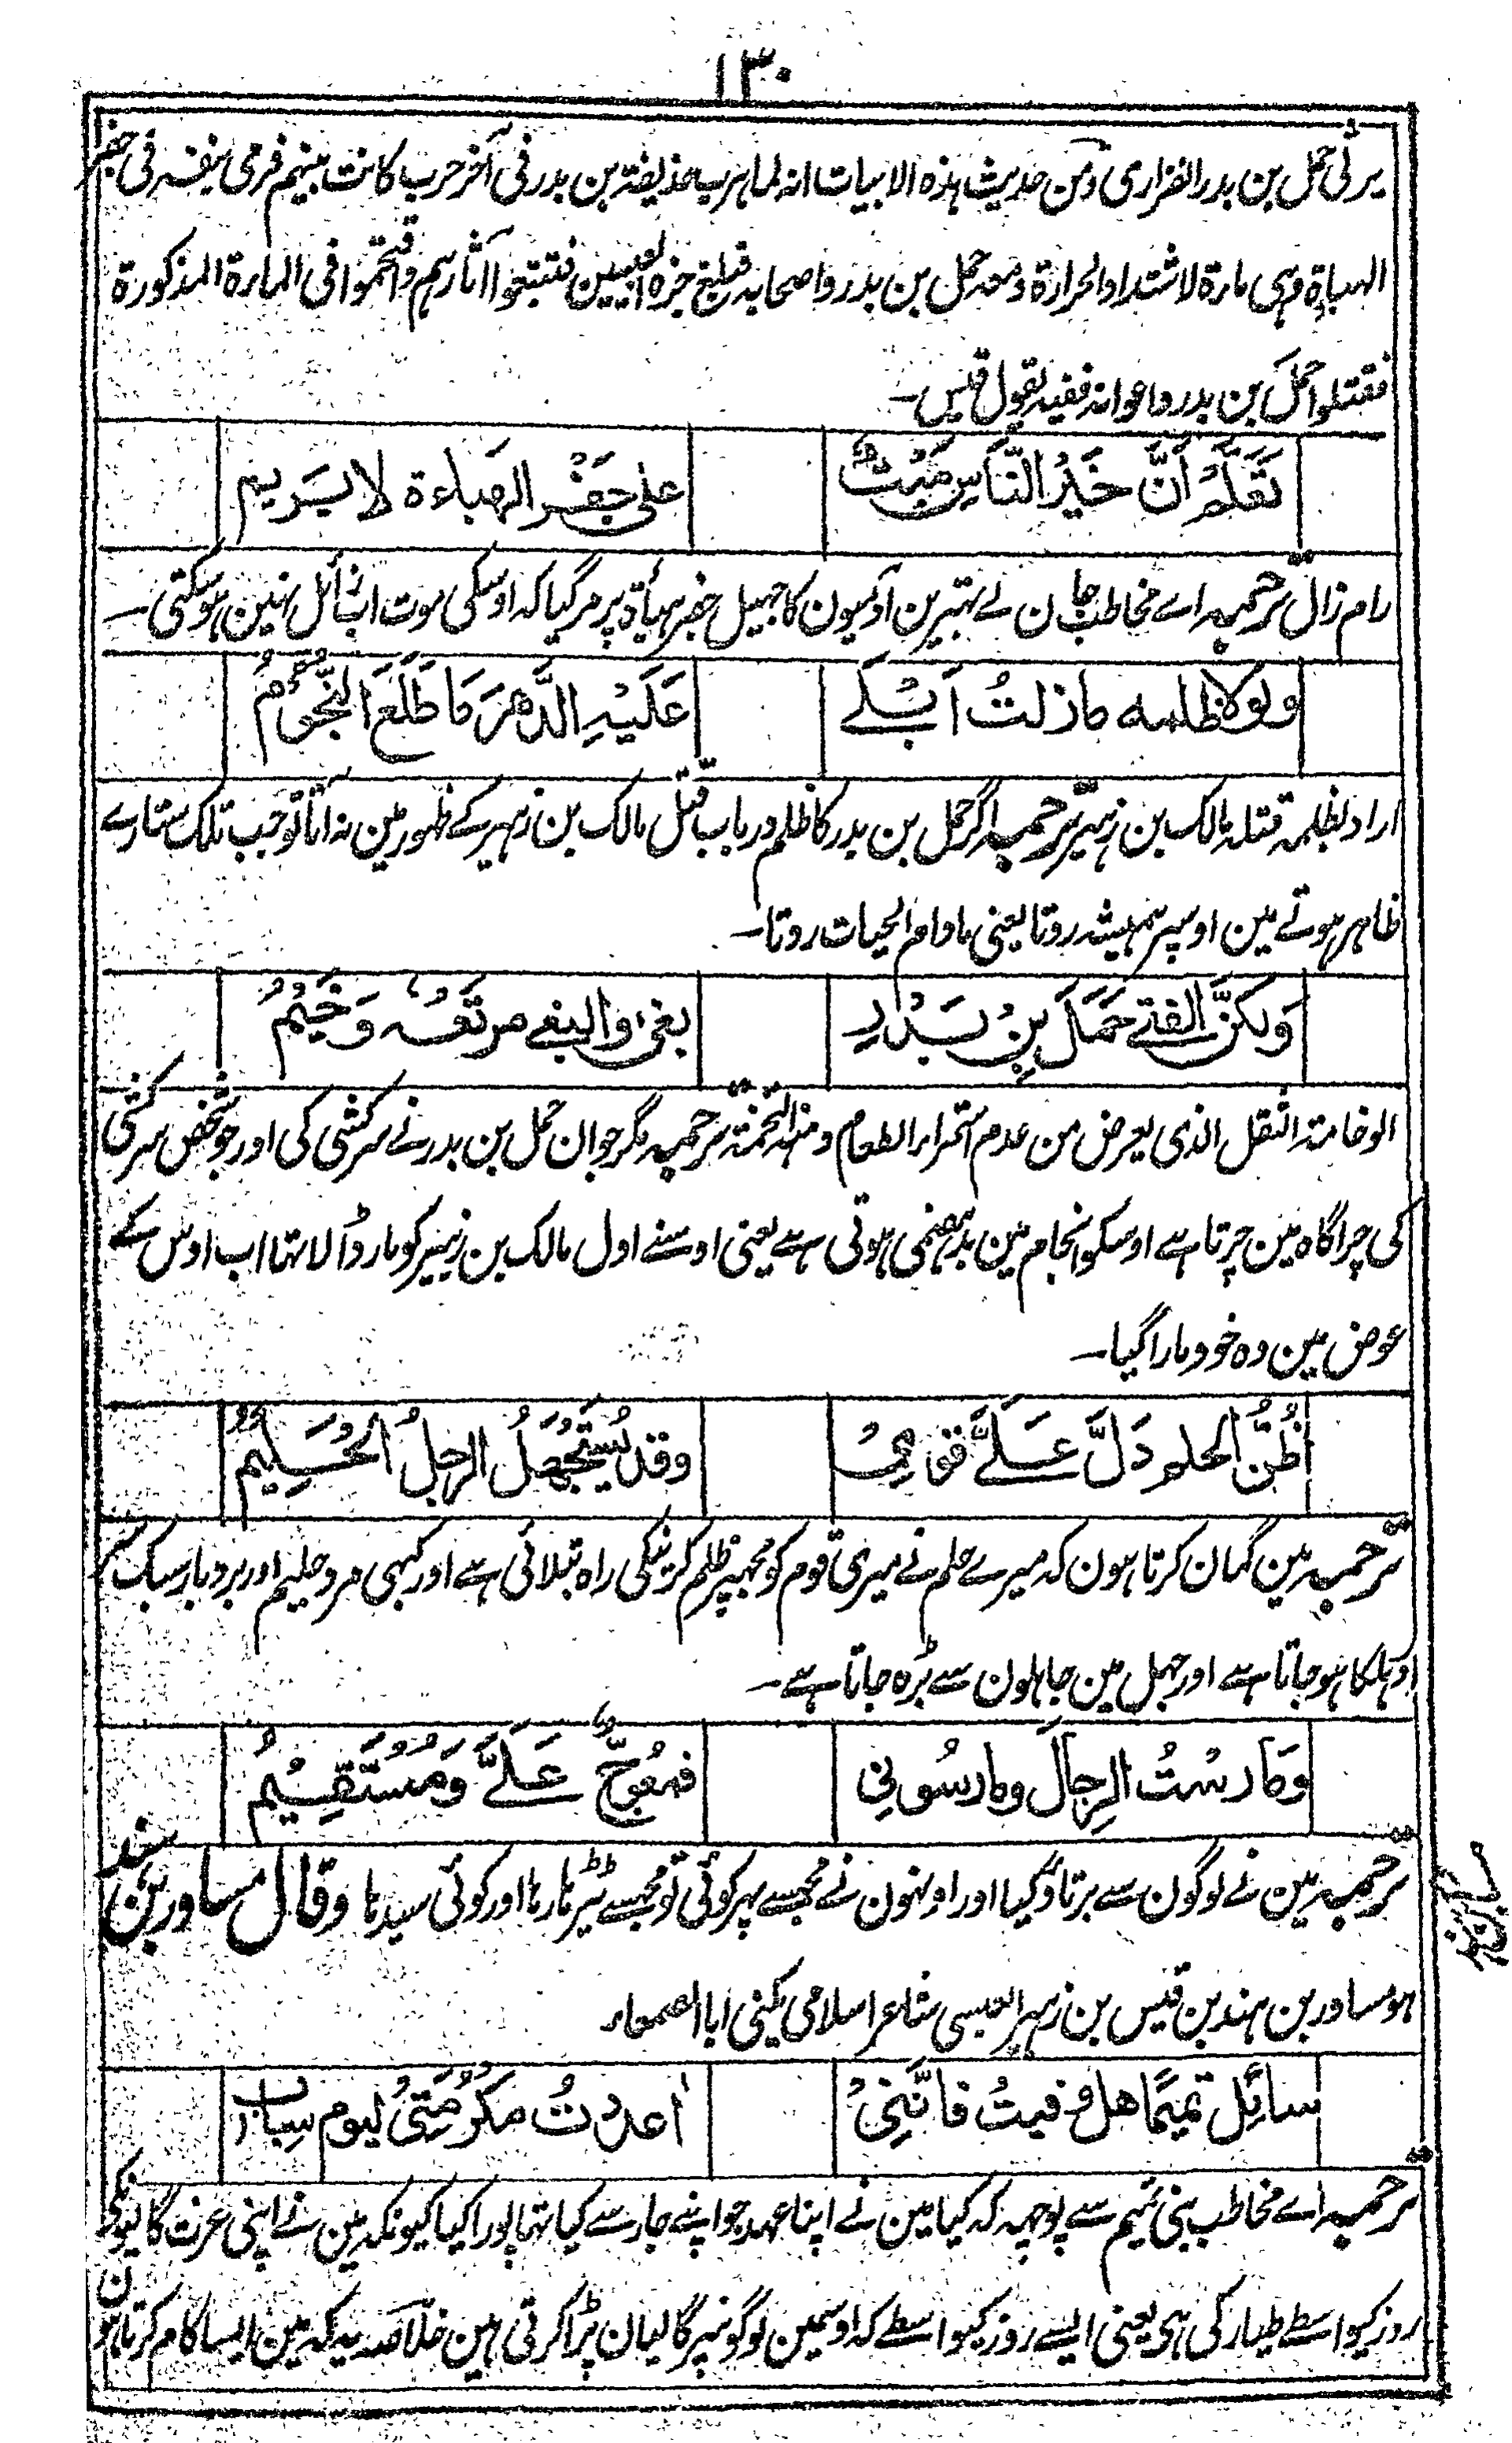 ۱۳۰
یرثی حمل بن بدر الفزاری ومن حدیث ہذہ الابیات انہ لما ہرب حذیفۃ بن بدر فی آخر حرب کانت بینہم فرمی بنفسہ فی جفر
الہباءۃ وہی مارۃ لاشتداد الحرارۃ ومعہ حمل بن بدر واصحابہ فبلغ خبرہ العبسیین فتتبعوا آثارہم واقتحموا فی المارۃ المذکورۃ
فقتلوا حمل بن بدر واعوانہ ففیہ یقول قیس۔
تَعَلَّمْ اَنَّ خَیْرَ النَّاسِ مَیْتٌ
علی جَفْرِ الهَباءة لا یَریم
رام زال ترجمہ اے مخاطب جان لے بہترین آدمیون کا جھیل جفر ہباۃ پر مر گیا کہ اوسکی موت اب زائل نہین ہو سکتی۔
ولولا ظلمه مازلتُ اَبْکے
عَلَیْهِ الدَّهرَ مَا طَلَعَ النُّجُوْمُ
اراد بظلمہ قتلہ مالک بن زہیر ترجمہ اگر حمل بن بدر کا ظلم در باب قتل مالک بن زہیر کے ظہور مین نہ آتا تو جب تلک ستارے
ظاہر ہوتے ہین اوسپر ہمیشہ روتا یعنی مادام الحیات روتا۔
وَلکنَّ الفتے حَمَلَ بنَ بَدْرٍ
بغی والبغے مرتعُه وَخِیْمُ
الوخامۃ الثقل الذی یعرض من عدم استمراء الطعام ومنہ التخمۃ ترجمہ مگر جوان حمل بن بدر نے سرکشی کی اور جو شخص سرکشی
کی چراگاہ مین چرتا ہے اوسکو انجام مین بدہضمی ہوتی ہے یعنی اوسنے اول مالک بن زہیر کو مار ڈالا تھا اب اوس کے
عوض مین وہ خود مارا گیا۔
اَظُنُّ الحلم دَلَّ عَلَےَّ قومِیْ
وقد یُسْتَجْهَلُ الرجلُ الحَلِیْمُ
ترجمہ مین گمان کرتا ہون کہ میرے حلم نے میری قوم کو مجھپر ظلم کرنیکی راہ بتلائی ہے اور کبھی مرد حلیم اور بردبار سبک سر
اوہلکا ہو جاتا ہے اور جہل مین جاہلون سے بڑہ جاتا ہے۔
وَمَارسْتُ الرِجالَ ومارسُونی
فمُعْوَجٌّ عَلَےَّ وَمُسْتَقِیْمُ
ترجمہ مین نے لوگون سے برتاؤ کیا اور اونہون نے مجھسے پھر کوئی تو مجھسے ٹیڑھا رہا اور کوئی سیدہا وقال مساور بن ہند
ہو مساور بن ہند بن قیس بن زہیر العبسی شاعر اسلامی یکنی ابا الصمعاء
سائِل تمیمًا هل وفیتُ فانَّنِیْ
اَعددتُ مکرُمَتِیْ لیوم سِبابِ
ترجمہ اے مخاطب بنی تمیم سے پوچھہ کہ کیا مین نے اپنا عہد جو اپنے جار سے کیا تھا پورا کیا کیونکہ مین نے اپنی عزت گالیونکے
روز کیواسطے طیار کی ہی یعنی ایسے روز کیواسطے کہ اوسمین لوگونپر گالیان پڑا کرتی ہین خلاصہ یہ کہ مین ایسا کام کرتا ہون